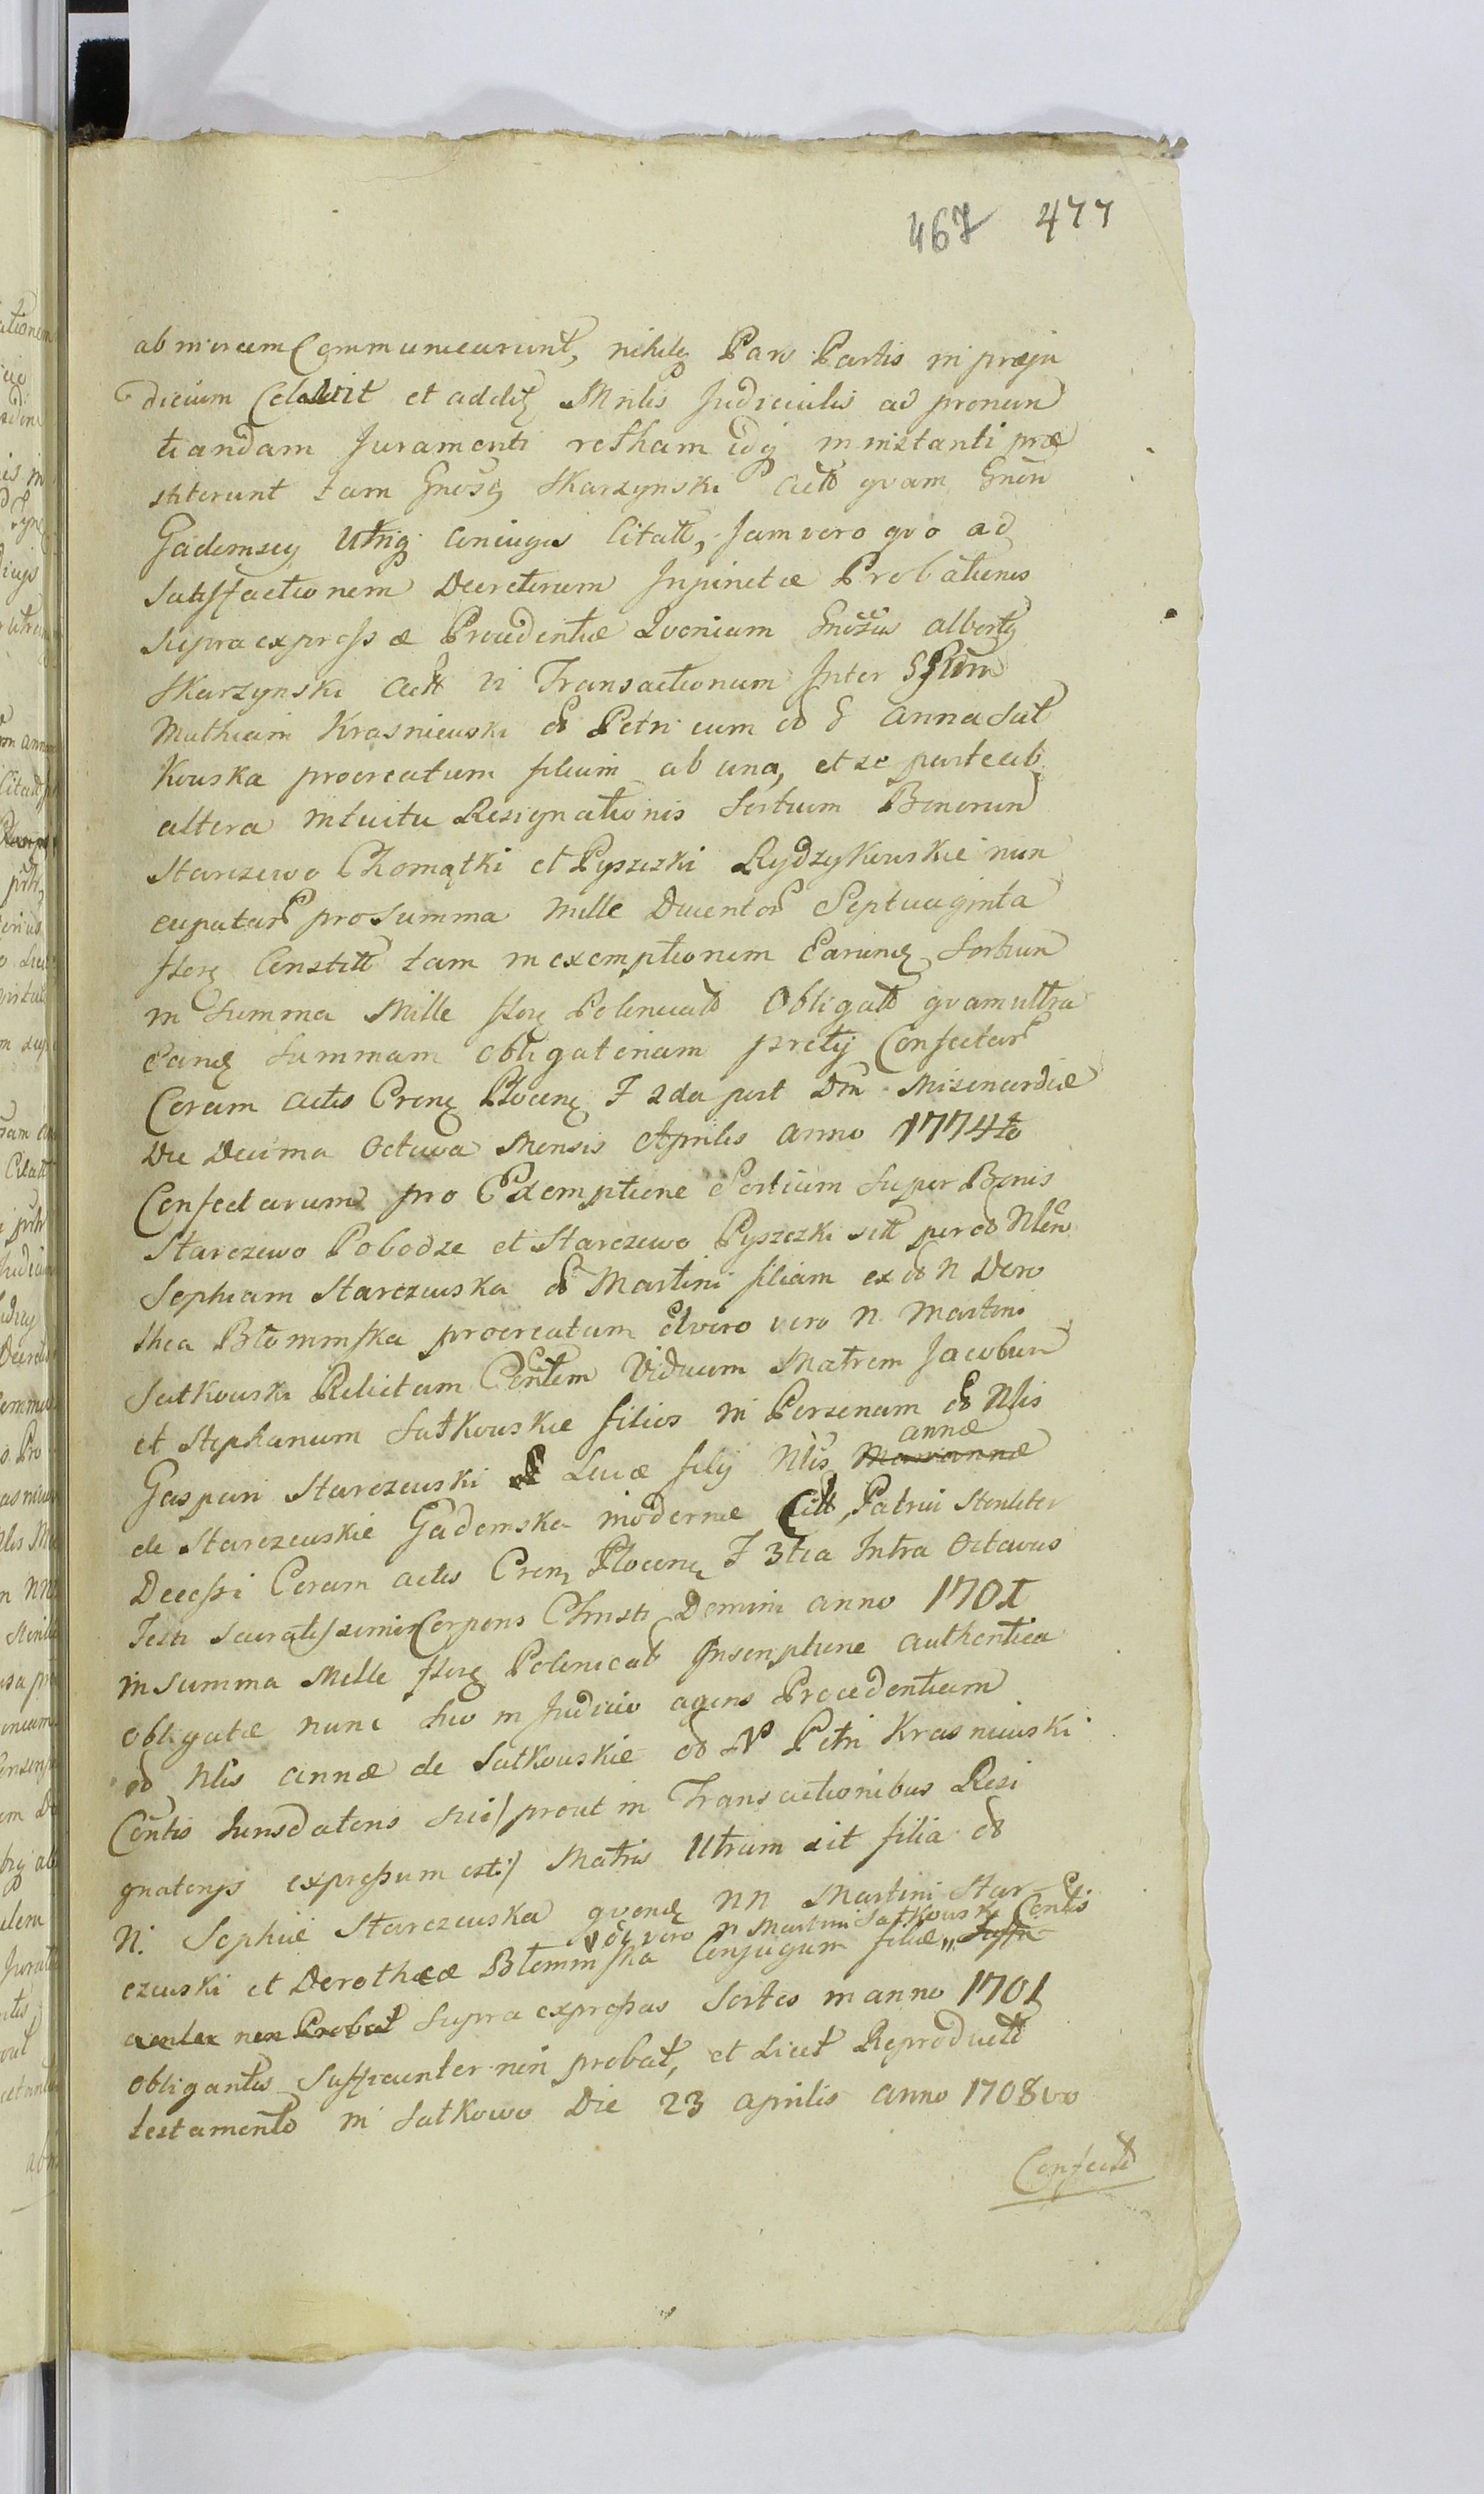 467 477
ab invicem Communicarunt, nihilq Pars Partis in praeju
dicium Celavit et additq Mnlis Judicialis ad pronun
tiandam Juramenti rotham idq in instanti prae
stiterunt tam Gnosq Skarzynski actt quam Gnen
Gademscy Utriq coniuges Citatt, Jam vero quo ad
Satisfactionem Decretorum Injunctae Probationis
supra expressae Procedentiae Quoniam Gnosus albertq
Skarzynski actt vi Transactionum Inter
Mathiam Krasniewski Petri cum od G anna Sut
kowska procreatum filium ab una, et se parte ab
altera intuitu Resignationis Sortium Bonorum
Starczewo Chomątki et Pyszczki Rydzykowskie nun
cupatar pro Summa Mille Ducentor Septuaginta
florq Constitt tam in exemptionem Earundq Sortium
in Summa Mille florq Polonicatt Obligatt quam ultra
Eandq Summam obligatoriam pretij Confectar
Coram actis Crenq Plocenq F 2da post Dm Misericordiae
Die Decima Octava Mensis Aprilis anno 1774to
Confectarum pro Exemptione Sortium super Bonis
Starczewo Pobodze et Starczewo Pyszczki sitt per od Nlem
Sophiam Starczewska od Martini filiam ex od N Doro
thea Błominska procreatam 2do vero voto N Martini
Sutkowski Relictam Contem Viduam Matrem Jacobum
et Stephanum Sutkowskie filios in Personam od Nlis
annae
Gaspari Starczewski Lucae filij Nlis Mariannae
de Starczewskie Gadomska modernae Citt, Patrui Steriliter
Decessi Coram actis Crenq Plocenq F 3tia Intra Octavas
Festi Sacratissimi Corporis Christi Domini anno 1701
in Summa Mille florq Polonicatt Inscriptione authentica
obligatae nunc suo in Judicio agens Procedentiam
od Nlis annae de Sutkowskie od N Petri Krasniewski
Contis Jurisdatoris sui / prout in Transactionibus Resi
gnatorijs expressum est:/ Matris Utrum sit filia od
N. Sophiae Starczewska quondq NN Martini Star
2do vero N Martini Sutkowski Contis
czewski et Dorotheae Błominska Conjugum filiae,, Suffi
cienter non Probat Supra expressas Sortes in anno 1701
obligantis Sufficienter non probat, et licet Reproductt
testamento in Sutkowo Die 23 aprilis anno 1708vo
Confectt